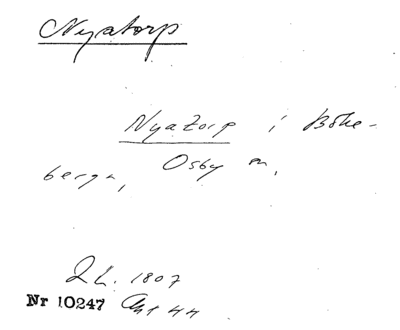 Nyatorp
Nyatorp i Böke-
berga,
Osby sn,
1807
Nr 10247 44